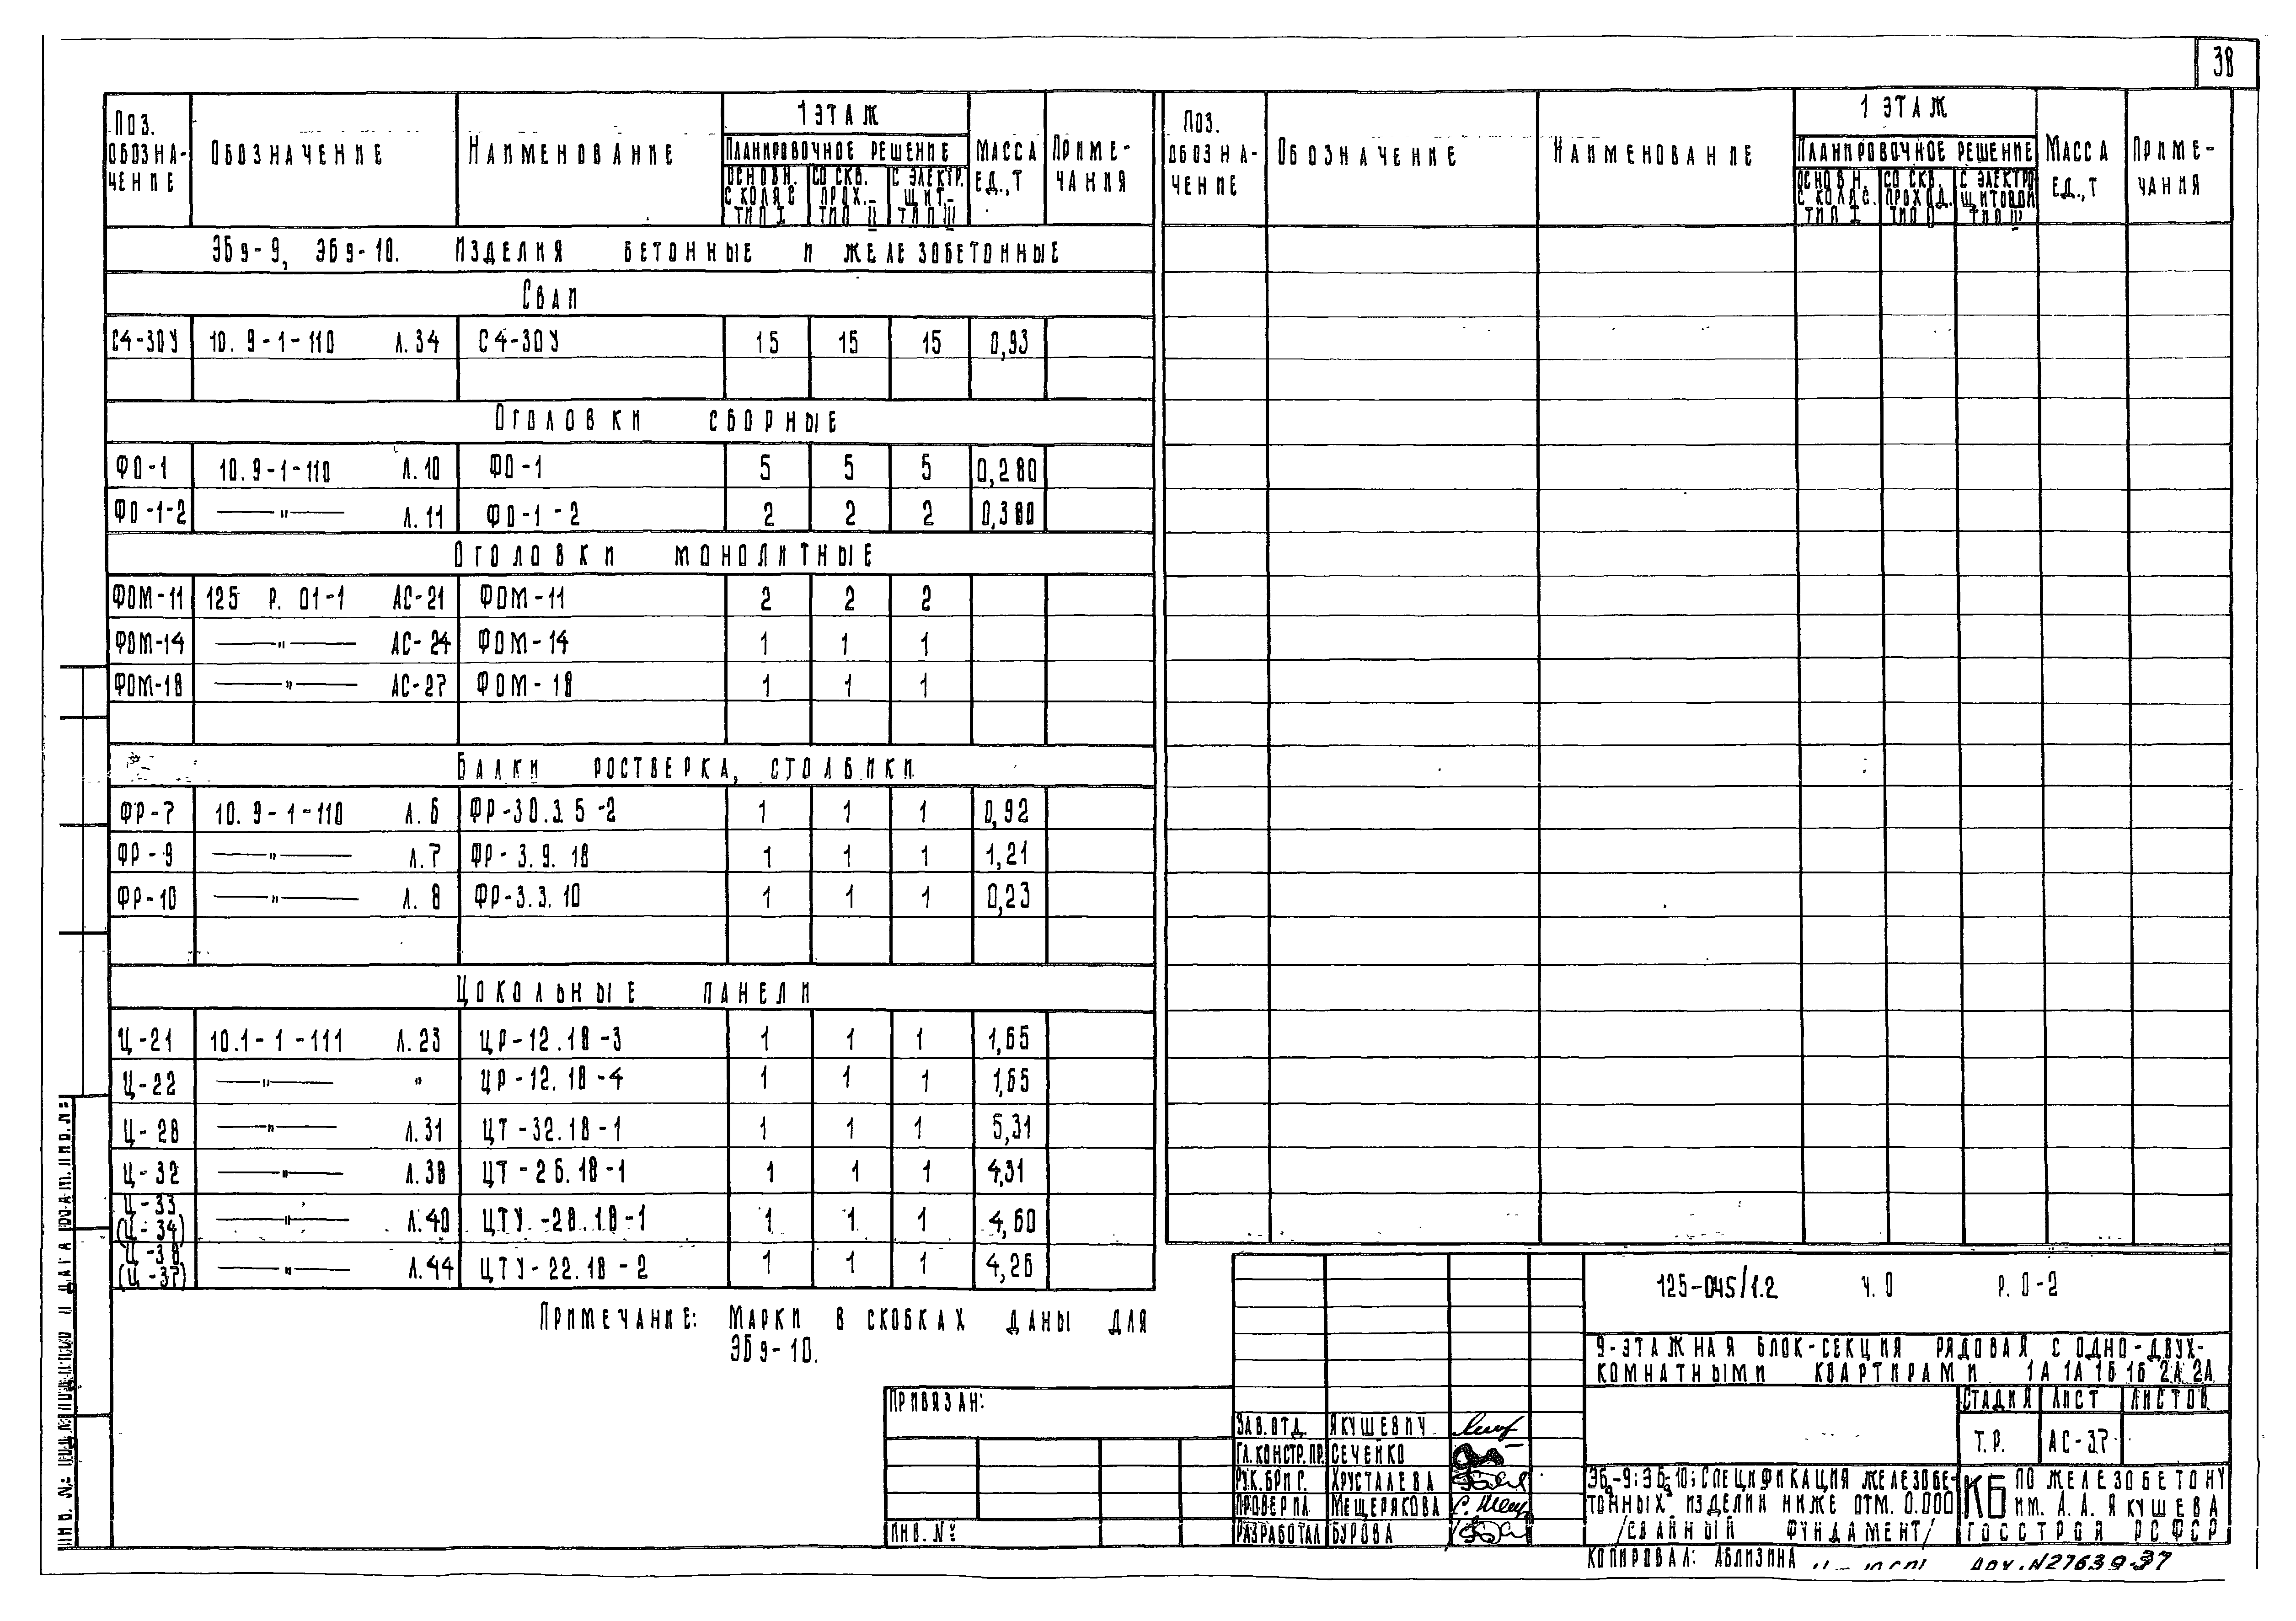 38
Поз. обозначение | Обозначение | Наименование | 1 этаж | Масса ед., т | Примечания
Планировочное решение
основн. с коляс тип I | со скв. прох. тип II | с электр. щит. тип III
Поз. обозначение | Обозначение | Наименование | 1 этаж | Масса ед., т | Примечания
Планировочное решение
основн. с коляс. тип I | со скв. проход. тип II | с электрощитовой тип III
ЭБ9-9, ЭБ9-10. Изделия бетонные и железобетонные
Сваи
С4-30У | 10.9-1-110 л.34 | С4-30У | 15 | 15 | 15 | 0,93
Оголовки сборные
ФО-1 | 10.9-1-110 л.10 | ФО-1 | 5 | 5 | 5 | 0,280
ФО-1-2 | —"— л.11 | ФО-1-2 | 2 | 2 | 2 | 0,380
Оголовки монолитные
ФОМ-11 | 125 р. 01-1 АС-21 | ФОМ-11 | 2 | 2 | 2
ФОМ-14 | —"— АС-24 | ФОМ-14 | 1 | 1 | 1
ФОМ-18 | —"— АС-27 | ФОМ-18 | 1 | 1 | 1
Балки ростверка, столбики
ФР-7 | 10.9-1-110 л.6 | ФР-30.3.5-2 | 1 | 1 | 1 | 0,92
ФР-9 | —"— л.7 | ФР-3.9.18 | 1 | 1 | 1 | 1,21
ФР-10 | —"— л.8 | ФР-3.3.10 | 1 | 1 | 1 | 0,23
Цокольные панели
Ц-21 | 10.1-1-111 л.23 | ЦР-12.18-3 | 1 | 1 | 1 | 1,65
Ц-22 | —"— " | ЦР-12.18-4 | 1 | 1 | 1 | 1,65
Ц-28 | —"— л.31 | ЦТ-32.18-1 | 1 | 1 | 1 | 5,31
Ц-32 | —"— л.38 | ЦТ-26.18-1 | 1 | 1 | 1 | 4,31
Ц-33 (Ц-34) | —"— л.40 | ЦТУ-28.18-1 | 1 | 1 | 1 | 4,60
Ц-38 (Ц-37) | —"— л.44 | ЦТУ-22.18-2 | 1 | 1 | 1 | 4,26
Примечание: Марки в скобках даны для
ЭБ9-10.
Привязан:
Инв. №
Зав. отд. Якушевич
Гл. констр. пр. Сеченко
Рук. бриг. Хрусталева
Проверил Мещерякова
Разработал Бурова
125-045/1.2 ч. 0 р. 0-2
9-этажная блок-секция рядовая с одно-двух-
комнатными квартирами 1А 1А 1Б 1Б 2А 2А
Стадия | Лист | Листов
Т.Р. | АС-37
ЭБ9-9; ЭБ9-10; Спецификация железобе-
тонных изделий ниже отм. 0.000
/свайный фундамент/
КБ по железобетону
им. А.А. Якушева
Госстроя РСФСР
Копировал: Аблизина
N27639-37